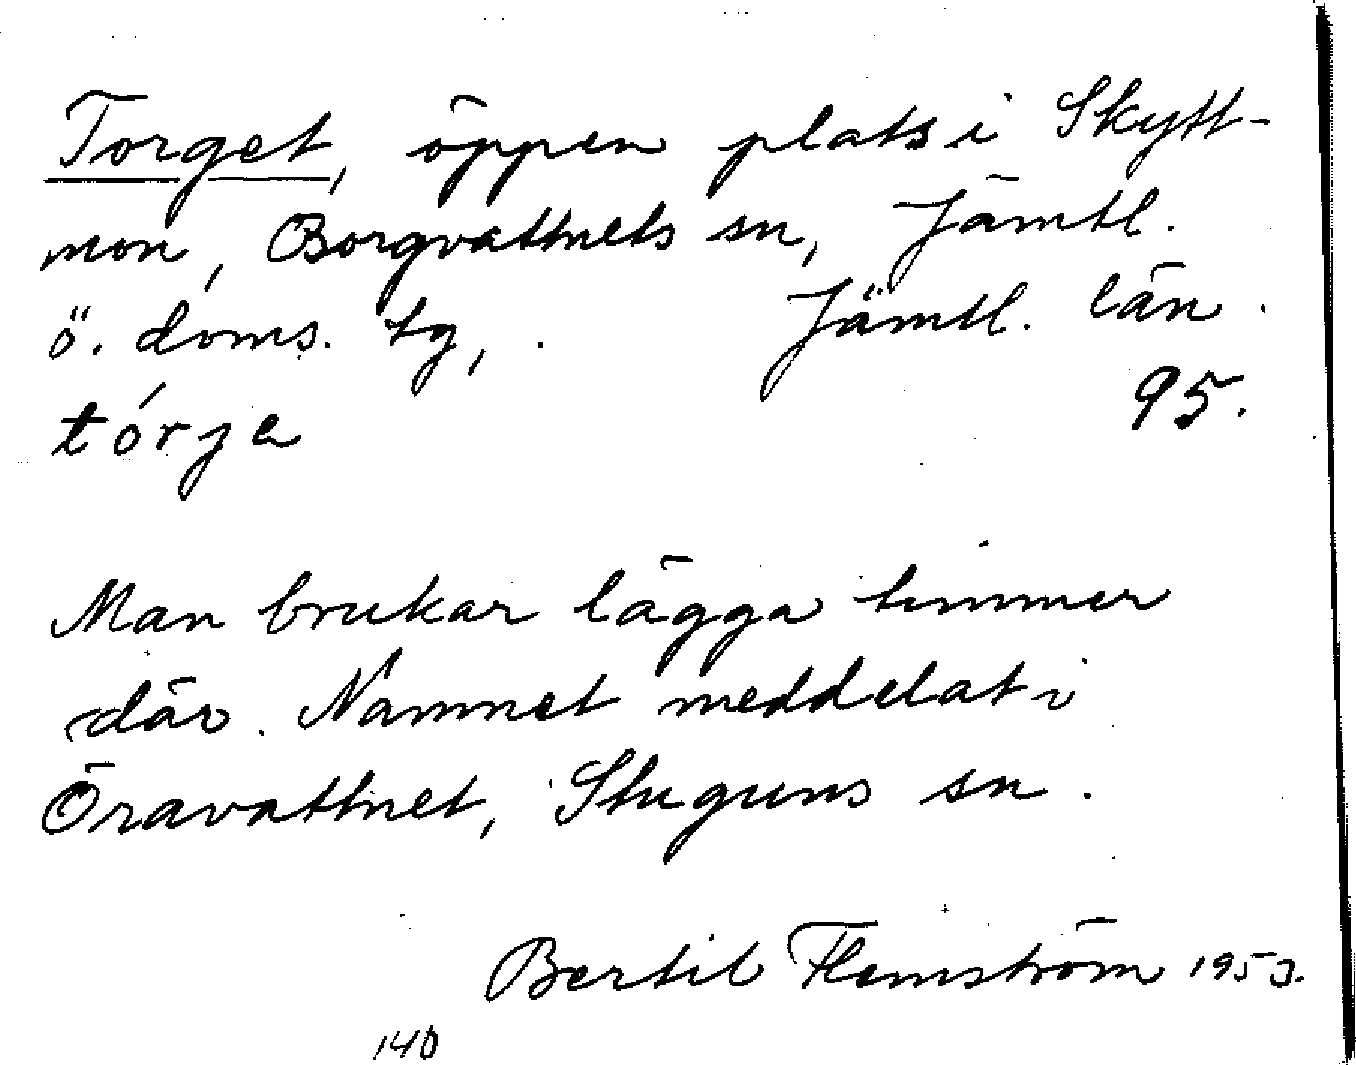 Torget, öppen plats i Skytt-
mon, Borgvattnets sn, Jämtl.
ö. doms. tg, Jämtl. län.
tórje 95.
Man brukar lägga timmer
där. Namnet meddelat i
Öravattnet, Stuguns sn.
Bertil Flemström 1953.
140